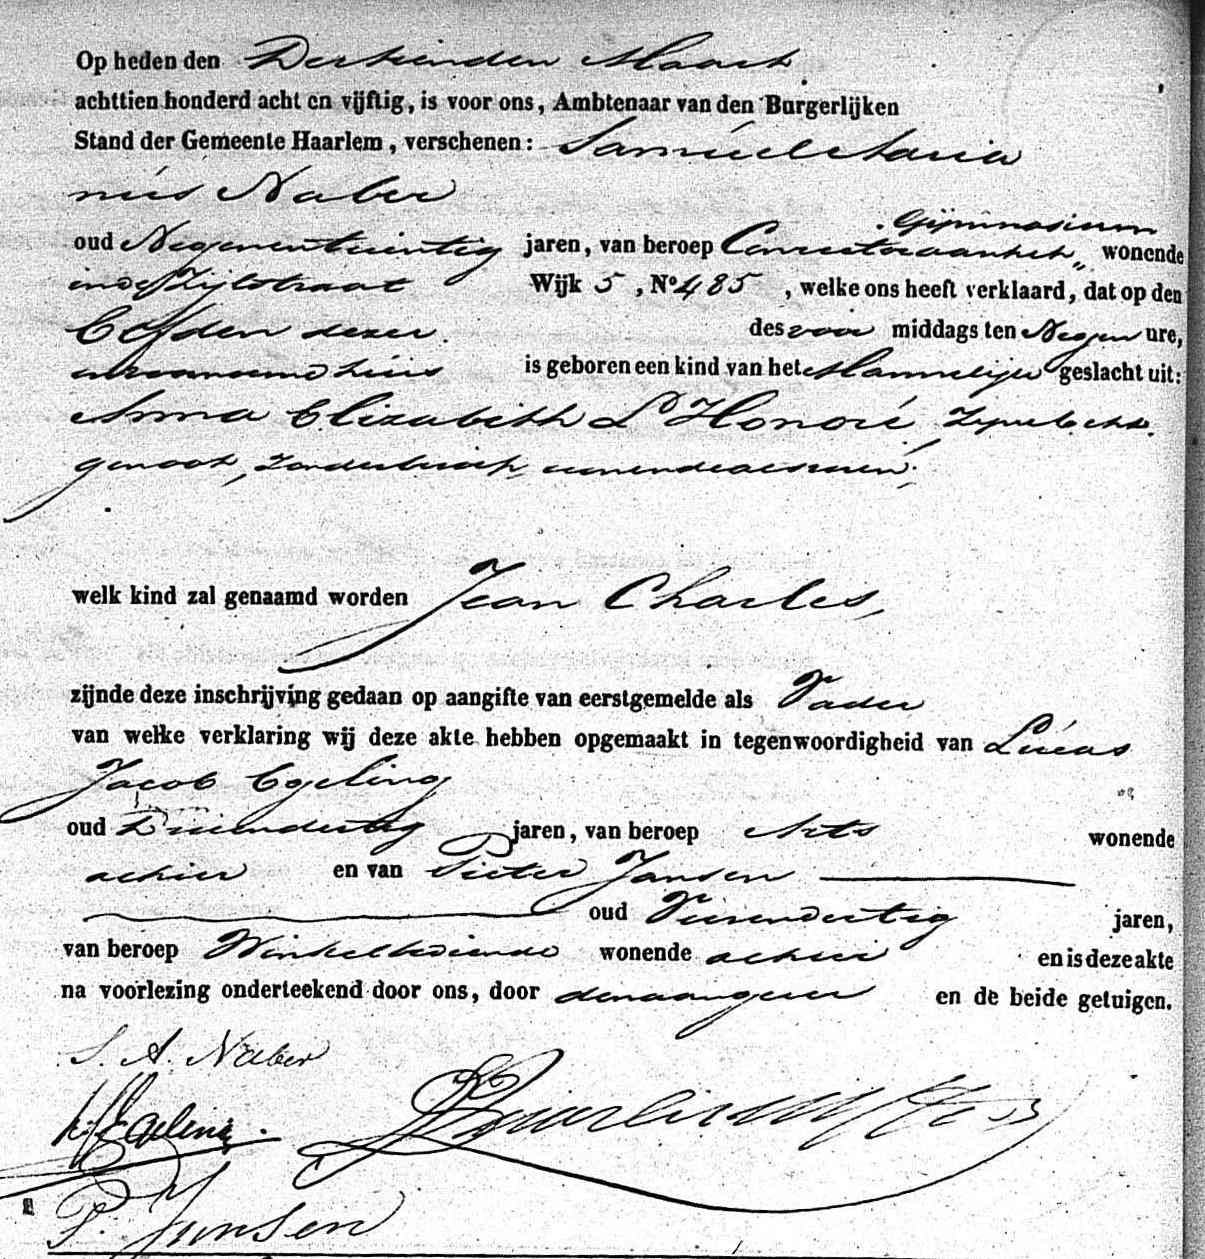 Op heden den Dertienden Maart
achttien honderd acht en vijftig, is voor ons, Ambtenaar van den Burgerlijken
Stand der Gemeente Haarlem, verschenen: Samuel Adria
nus Naber
Gijmnasium
oud Negenentwintig jaren, van beroep Conrector aan het wonende
in de Zijlstraat Wijk 5, No 485, welke ons heeft verklaard, dat op den
Elfden dezer des voor middags ten Negen ure,
is geboren een kind van het Mannelijk geslacht uit:
Anna Elizabeth L'Honoré Zijne Echt
genoot, zonder beroep, wonende als voren,
welk kind zal genaamd worden Jean Charles,
zijnde deze inschrijving gedaan op aangifte van eerstgemelde als Vader
van welke verklaring wij deze akte hebben opgemaakt in tegenwoordigheid van Lucas
Jacob Egeling
oud Drieendertig jaren, van beroep Arts wonende
alhier en van Pieter Jansen
oud Vierendertig jaren,
van beroep Winkelbediende wonende alhier en is deze akte
na voorlezing onderteekend door ons, door den aangever en de beide getuigen.
S. A. Naber
Egeling
P. Jansen